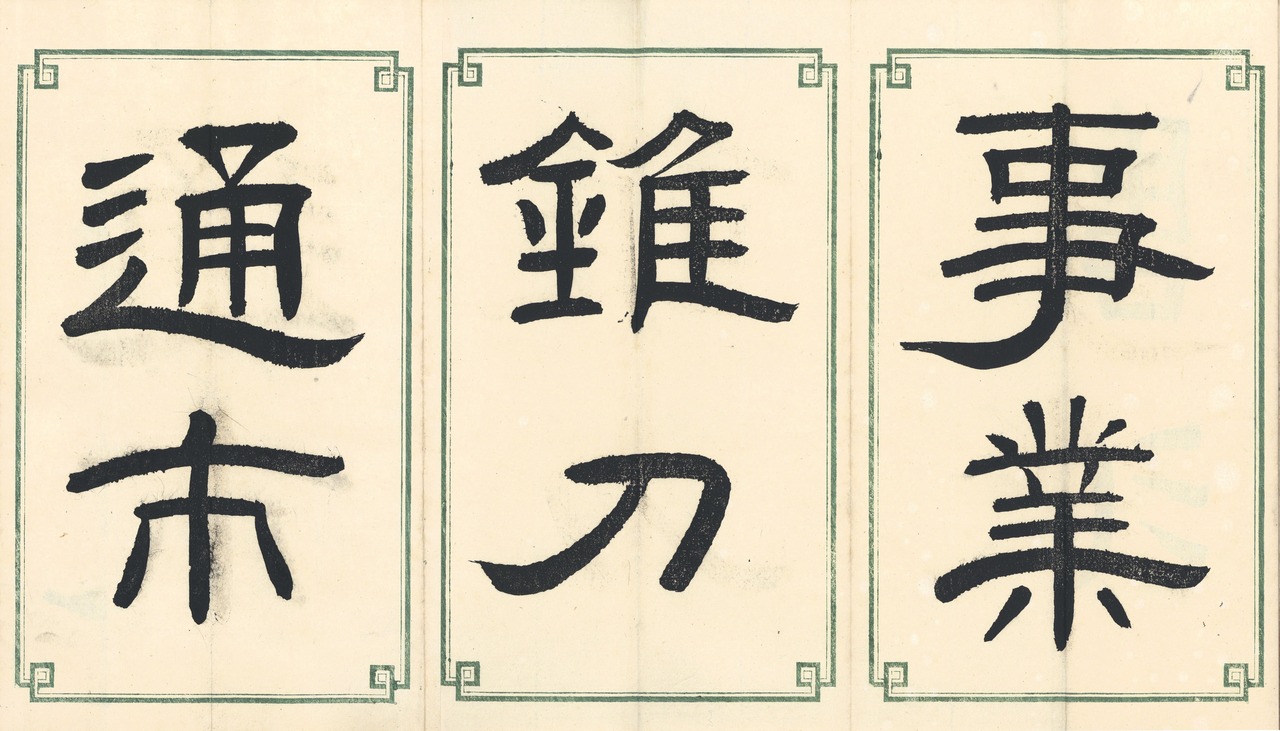 事業
錐刀
通市